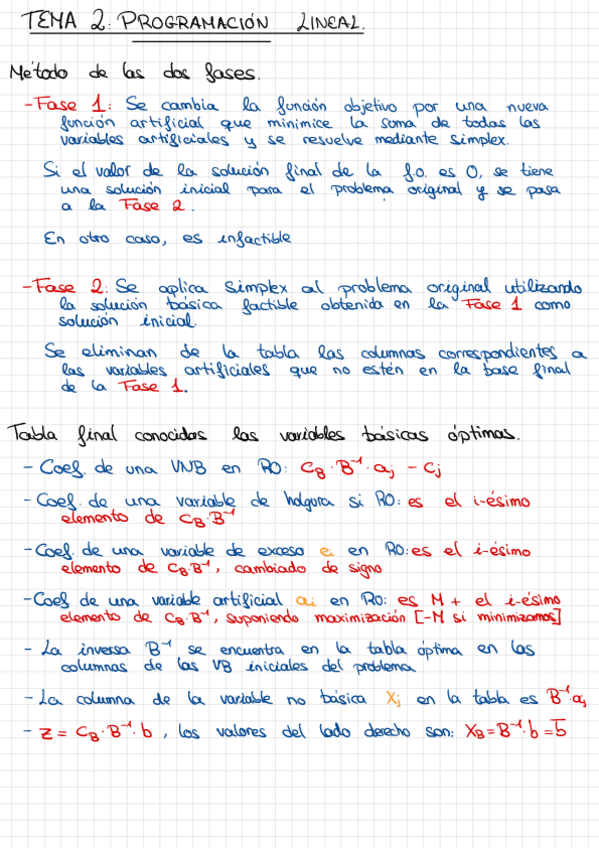 TEMA 2: PROGRAMACIÓN LINEAL.
Método de las dos fases.
- Fase 1: Se cambia la función objetivo por una nueva
función artificial que minimice la suma de todas las
variables artificiales y se resuelve mediante simplex.
Si el valor de la solución final de la f.o. es 0, se tiene
una solución inicial para el problema original y se pasa
a la Fase 2.
En otro caso, es infactible
- Fase 2: Se aplica Simplex al problema original utilizando
la solución básica factible obtenida en la Fase 1 como
solución inicial.
Se eliminan de la tabla las columnas correspondientes a
las variables artificiales que no estén en la base final
de la Fase 1.
Tabla final conocidas las variables básicas óptimas.
- Coef. de una VNB en R0: C_B · B⁻¹ · a_j - C_j
- Coef. de una variable de holgura si R0: es el i-ésimo
elemento de C_B · B⁻¹
- Coef. de una variable de exceso e_i en R0: es el i-ésimo
elemento de C_B · B⁻¹, cambiado de signo
- Coef de una variable artificial a_i en R0: es M + el i-ésimo
elemento de C_B · B⁻¹, suponiendo maximización [-M si minimizamos]
- La inversa B⁻¹ se encuentra en la tabla óptima en las
columnas de las VB iniciales del problema
- La columna de la variable no básica X_j en la tabla es B⁻¹·a_j
- z = C_B · B⁻¹ · b, los valores del lado derecho son: X_B = B⁻¹ · b = b̄